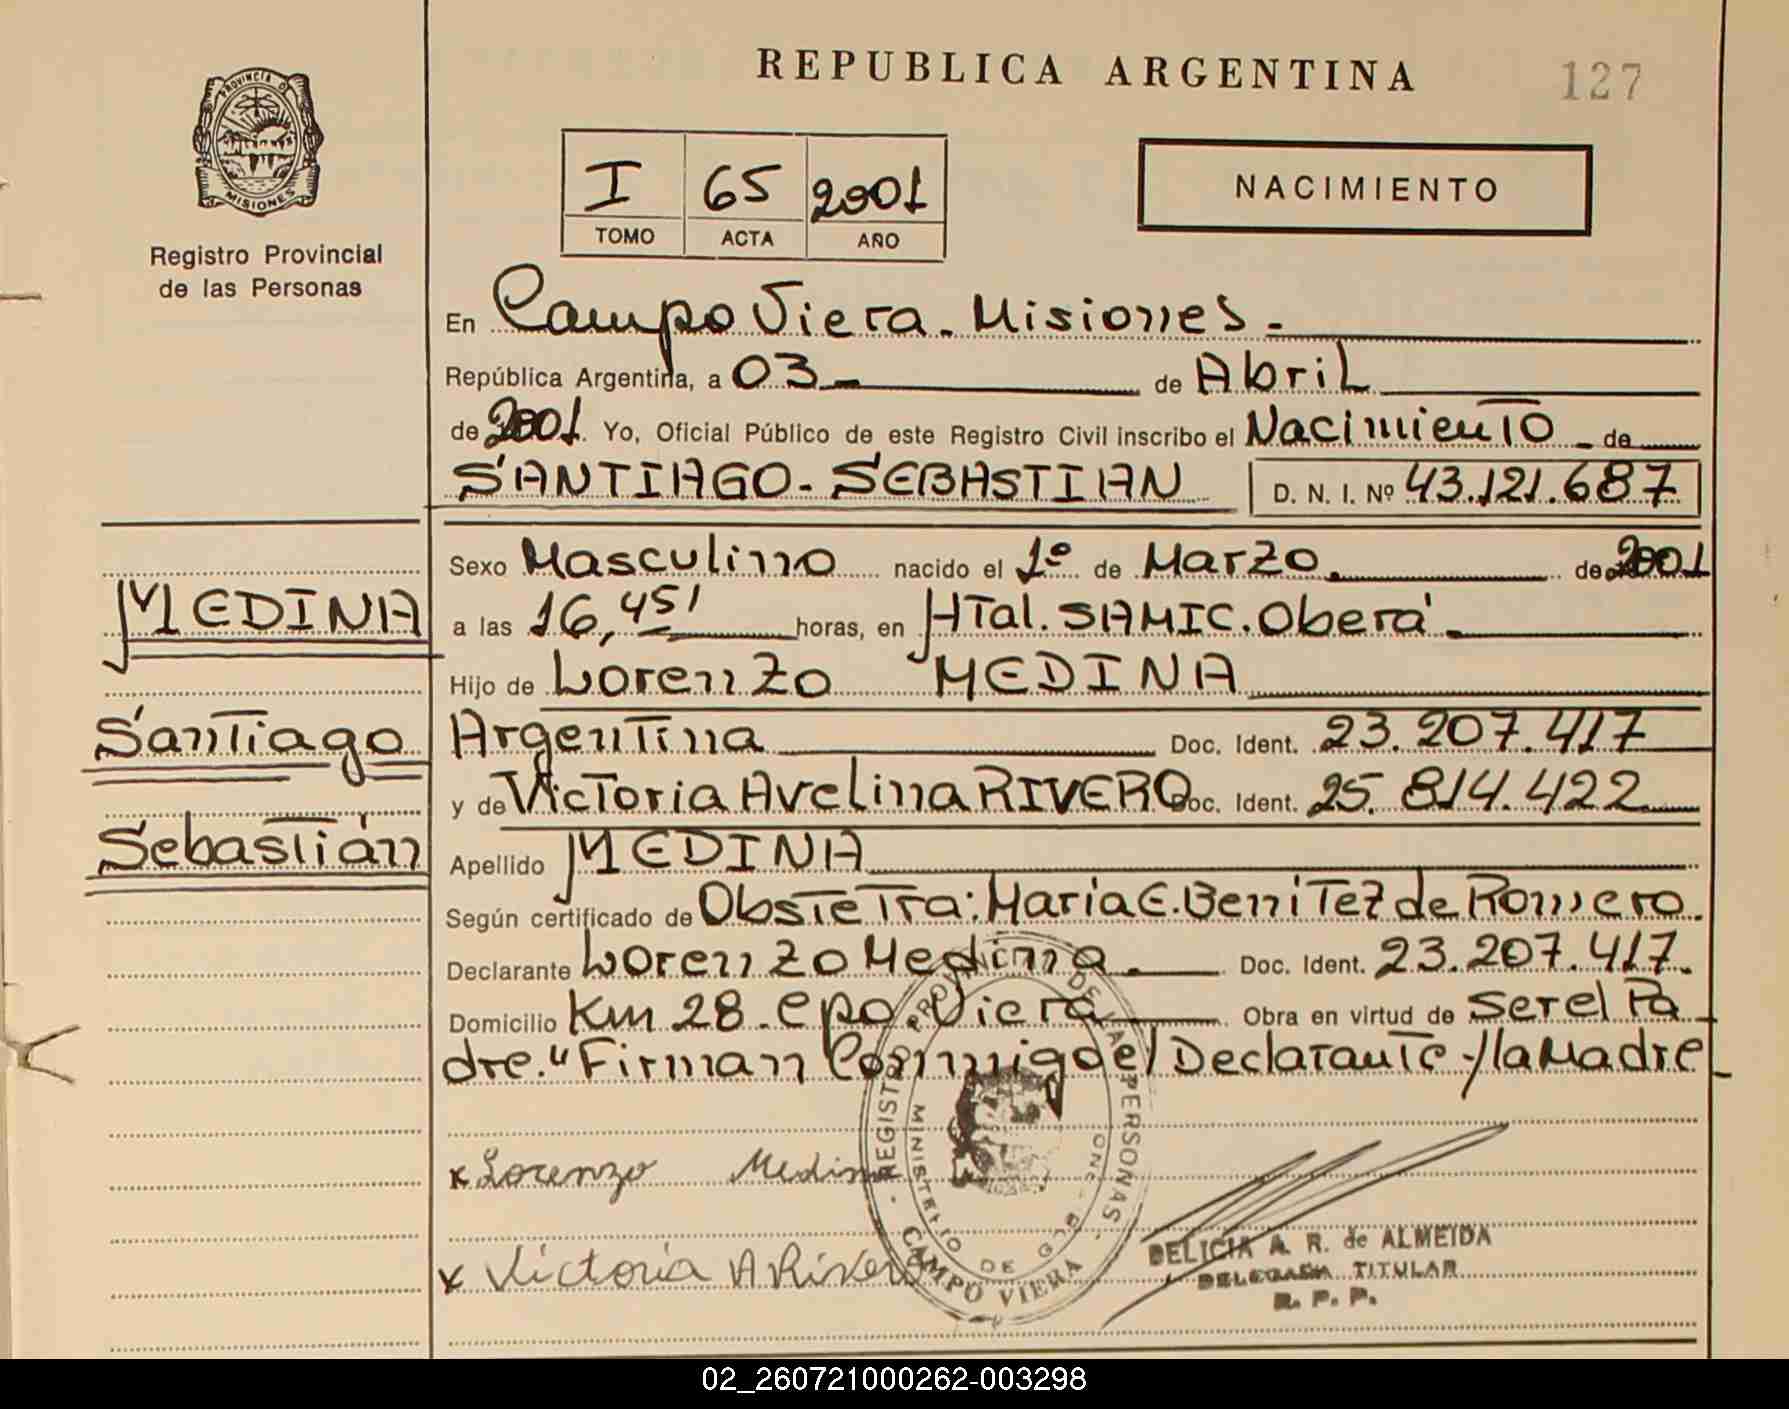 REPUBLICA ARGENTINA
127
PROVINCIA DE
MISIONES
Registro Provincial
de las Personas
I 65 2001
TOMO ACTA AÑO
NACIMIENTO
En Campo Viera - Misiones -
República Argentina, a 03 - de Abril
de 2001. Yo, Oficial Público de este Registro Civil inscribo el Nacimiento - de
SANTIAGO - SEBASTIAN D. N. I. Nº 43.121.687
Sexo Masculino nacido el 1º de Marzo. de 2001
a las 16,45' horas, en Htal. SAMIC. Oberá.
Hijo de Lorenzo MEDINA
Argentina Doc. Ident. 23.207.417
y de Victoria Avelina RIVERO Doc. Ident. 25.814.422
Apellido MEDINA
Según certificado de Obstetra: Maria E. Benitez de Romero.
Declarante Lorenzo Medina. Doc. Ident. 23.207.417.
Domicilio Km 28. Cpo. Viera Obra en virtud de ser el Pa
dre. "Firman Conmigo el Declarante y la Madre
MEDINA
Santiago
Sebastián
x Lorenzo Medina
x Victoria A Rivero
REGISTRO DE LAS PERSONAS
MINISTERIO DE
CAMPO VIERA
DELICIA A. R. de ALMEIDA
DELEGADA TITULAR
R. P. P.
02_260721000262-003298